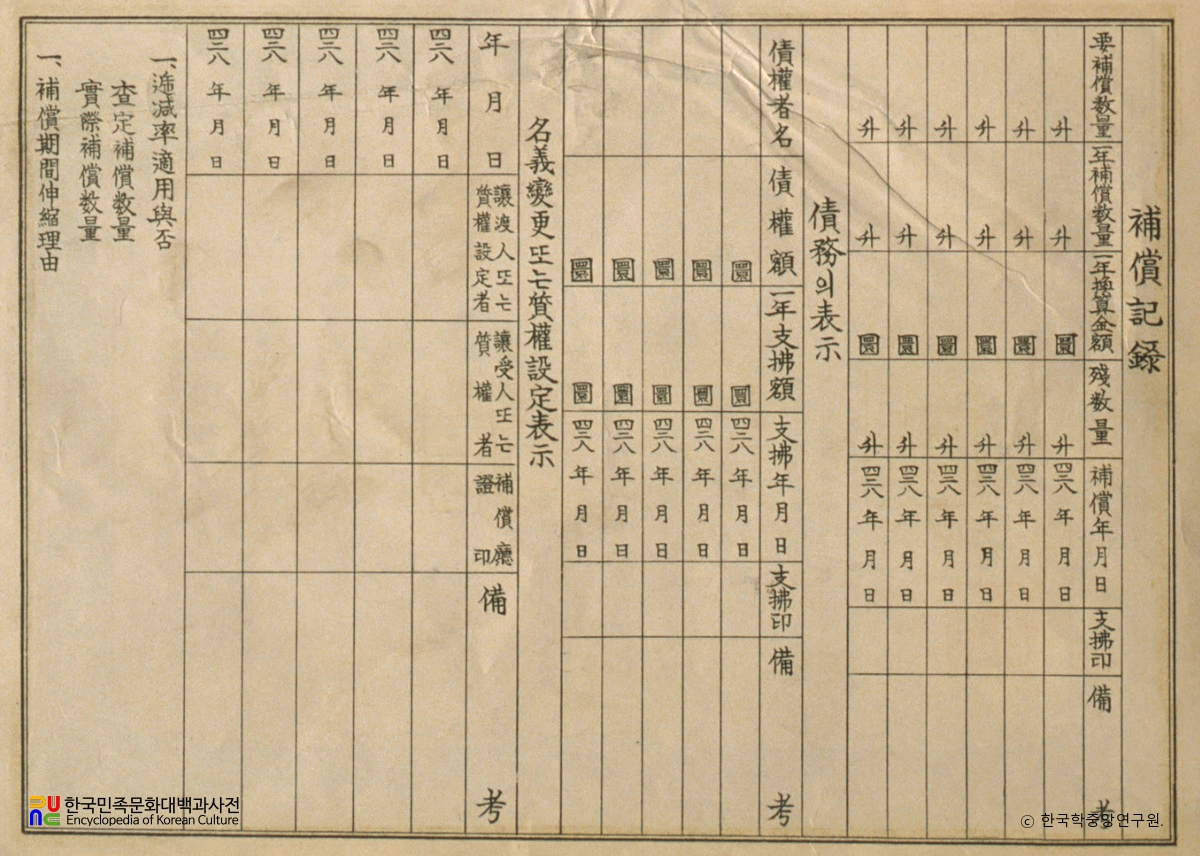 補償記録
要補償数量 一年補償数量 一年換算金額 残数量 補償年月日 支拂印 備考
升 升 圜 升 四二八 年 月 日
升 升 圜 升 四二八 年 月 日
升 升 圜 升 四二八 年 月 日
升 升 圜 升 四二八 年 月 日
升 升 圜 升 四二八 年 月 日
升 升 圜 升 四二八 年 月 日
債務의表示
債權者名 債權額 一年支拂額 支拂年月日 支拂印 備考
圜 圜 四二八 年 月 日
圜 圜 四二八 年 月 日
圜 圜 四二八 年 月 日
圜 圜 四二八 年 月 日
圜 圜 四二八 年 月 日
名義變更또는質權設定表示
年月日 讓渡人또는質權設定者 讓受人또는質權者 補償廳證印 備考
四二八 年 月 日
四二八 年 月 日
四二八 年 月 日
四二八 年 月 日
四二八 年 月 日
一、逓減率適用與否
査定補償数量
實際補償数量
一、補償期間伸縮理由
한국민족문화대백과사전
Encyclopedia of Korean Culture
ⓒ 한국학중앙연구원.